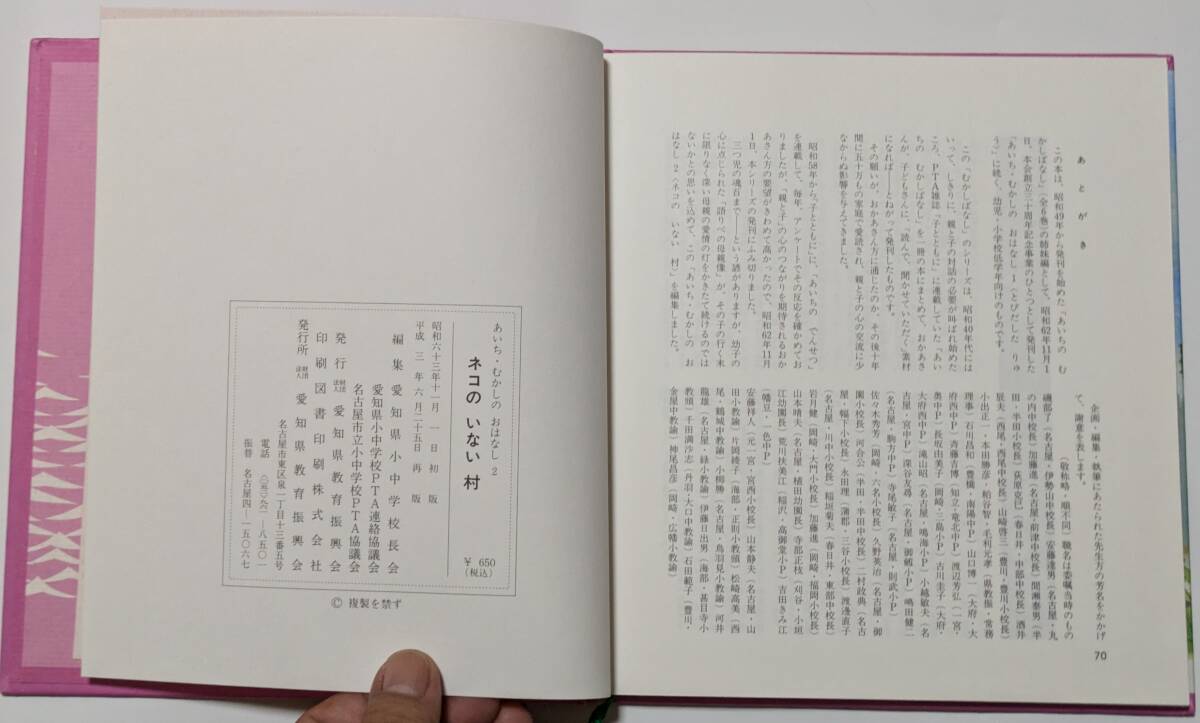 あとがき
この本は、昭和49年から発刊を始めた「あいちの む
かしばなし」(全6巻)の姉妹編として、昭和62年11月1
日、本会創立三十周年記念事業のひとつとして発刊した
「あいち・むかしの おはなし 1〈とびだした りゅ
う〉」に続く、幼児・小学校低学年向けのものです。
この「むかしばなし」のシリーズは、昭和40年代には
いって、しきりに、親と子の対話の必要が叫ばれ始めた
ころ、PTA雑誌「子とともに」に連載していた「あい
ちの むかしばなし」を一冊の本にまとめて、おかあさ
んが、子どもさんに、「読んで、聞かせていただく」素材
になれば――とねがって発刊したものです。
その願いが、おかあさん方に通じたのか、その後十年
間に五十万もの家庭で愛読され、親と子の心の交流に少
なからぬ影響を与えてきました。
昭和58年から「子とともに」に、「あいちの でんせつ」
を連載して、毎年、アンケートでその反応を確かめてお
りましたが、「親と子」の心のつながりを期待されるおか
あさん方の要望がきわめて高かったので、昭和62年11月
1日、本シリーズの発刊にふみ切りました。
三つ児の魂百まで――という諺がありますが、幼子の
心に点じられた「語りべの母親像」が、その子の行く末
に限りなく深い母親の愛情の灯をかきたて続けるのでは
ないかとの思いを込めて、この「あいち・むかしの お
はなし 2〈ネコの いない 村〉」を編集しました。
企画・編集・執筆にあたられた先生方の芳名をかかげ
て、謝意を表します。
(敬称略・順不同)職名は委嘱当時のもの
磯部了(名古屋・伊勢山中校長)安藤達男(名古屋・丸
の内中校長)加藤進(名古屋・前津中校長)間瀬泰男(半
田・半田小校長)荻原克已(春日井・中部中校長)酒井
辰夫(西尾・西尾中校長)山崎啓三(豊川・豊川小校長)
小出正一・本田勝彦・粕谷智・毛利元孝(県教振・常務
理事)石川昌和(豊橋・南陽中P)山口博一(大府・大
府西中P)斉藤吉博(知立・竜北中P)渡辺芳弘(一宮・
奥中P)長坂由美子(岡崎・三島小P)古川圭子(大府・
大府西中P)滝山昭(名古屋・鳴海小P)小越敏夫(名
古屋・宮中P)深谷友尋(名古屋・御劔小P)鳴田健二
(名古屋・駒方中P)寺尾敏子(名古屋・則武小P)
佐々木秀芳(岡崎・六名小校長)久野英治(名古屋・御
園小校長)河合公(半田・半田中校長)二村政典(名古
屋・幅下小校長)永田理(蒲郡・三谷小校長)渡邊直子
(名古屋・川中小校長)稲垣菊夫(春日井・東部中校長)
岩月健(岡崎・大門小校長)加藤進(岡崎・福岡小校長)
山本晴夫(名古屋・植田幼園長)寺部正枝(刈谷・小垣
江幼園長)荒川扶美江(稲沢・高御堂小P)吉田きみ江
(幡豆・一色中P)
安藤祥人(元一宮・宮西小校長)山本静夫(名古屋・山
田小教諭)片岡綾子(海部・正則小教頭)松崎高美(西
尾・鶴城中教諭)小栁勝(名古屋・鳥羽見小教諭)河井
龍雄(名古屋・緑小教諭)伊藤日出男(海部・甚目寺小
教頭)千田満沙志(丹羽・大口中教諭)石田範子(豊川・
金屋中教諭)神尾昌彦(岡崎・広幡小教諭)
70
あいち・むかしの おはなし 2
ネコの いない 村
昭和六十三年十一月 一 日 初 版
平成 三 年六月二十五日 再 版
¥ 650
(税込)
編集 愛知県小中学校長会
愛知県小中学校PTA連絡協議会
名古屋市立小中学校PTA協議会
発行 財団法人 愛知県教育振興会
印刷 図書印刷株式会社
発行所 財団法人 愛知県教育振興会
名古屋市東区泉一丁目十三番五号
振替 名古屋四―一五〇六七
© 複製を禁ず